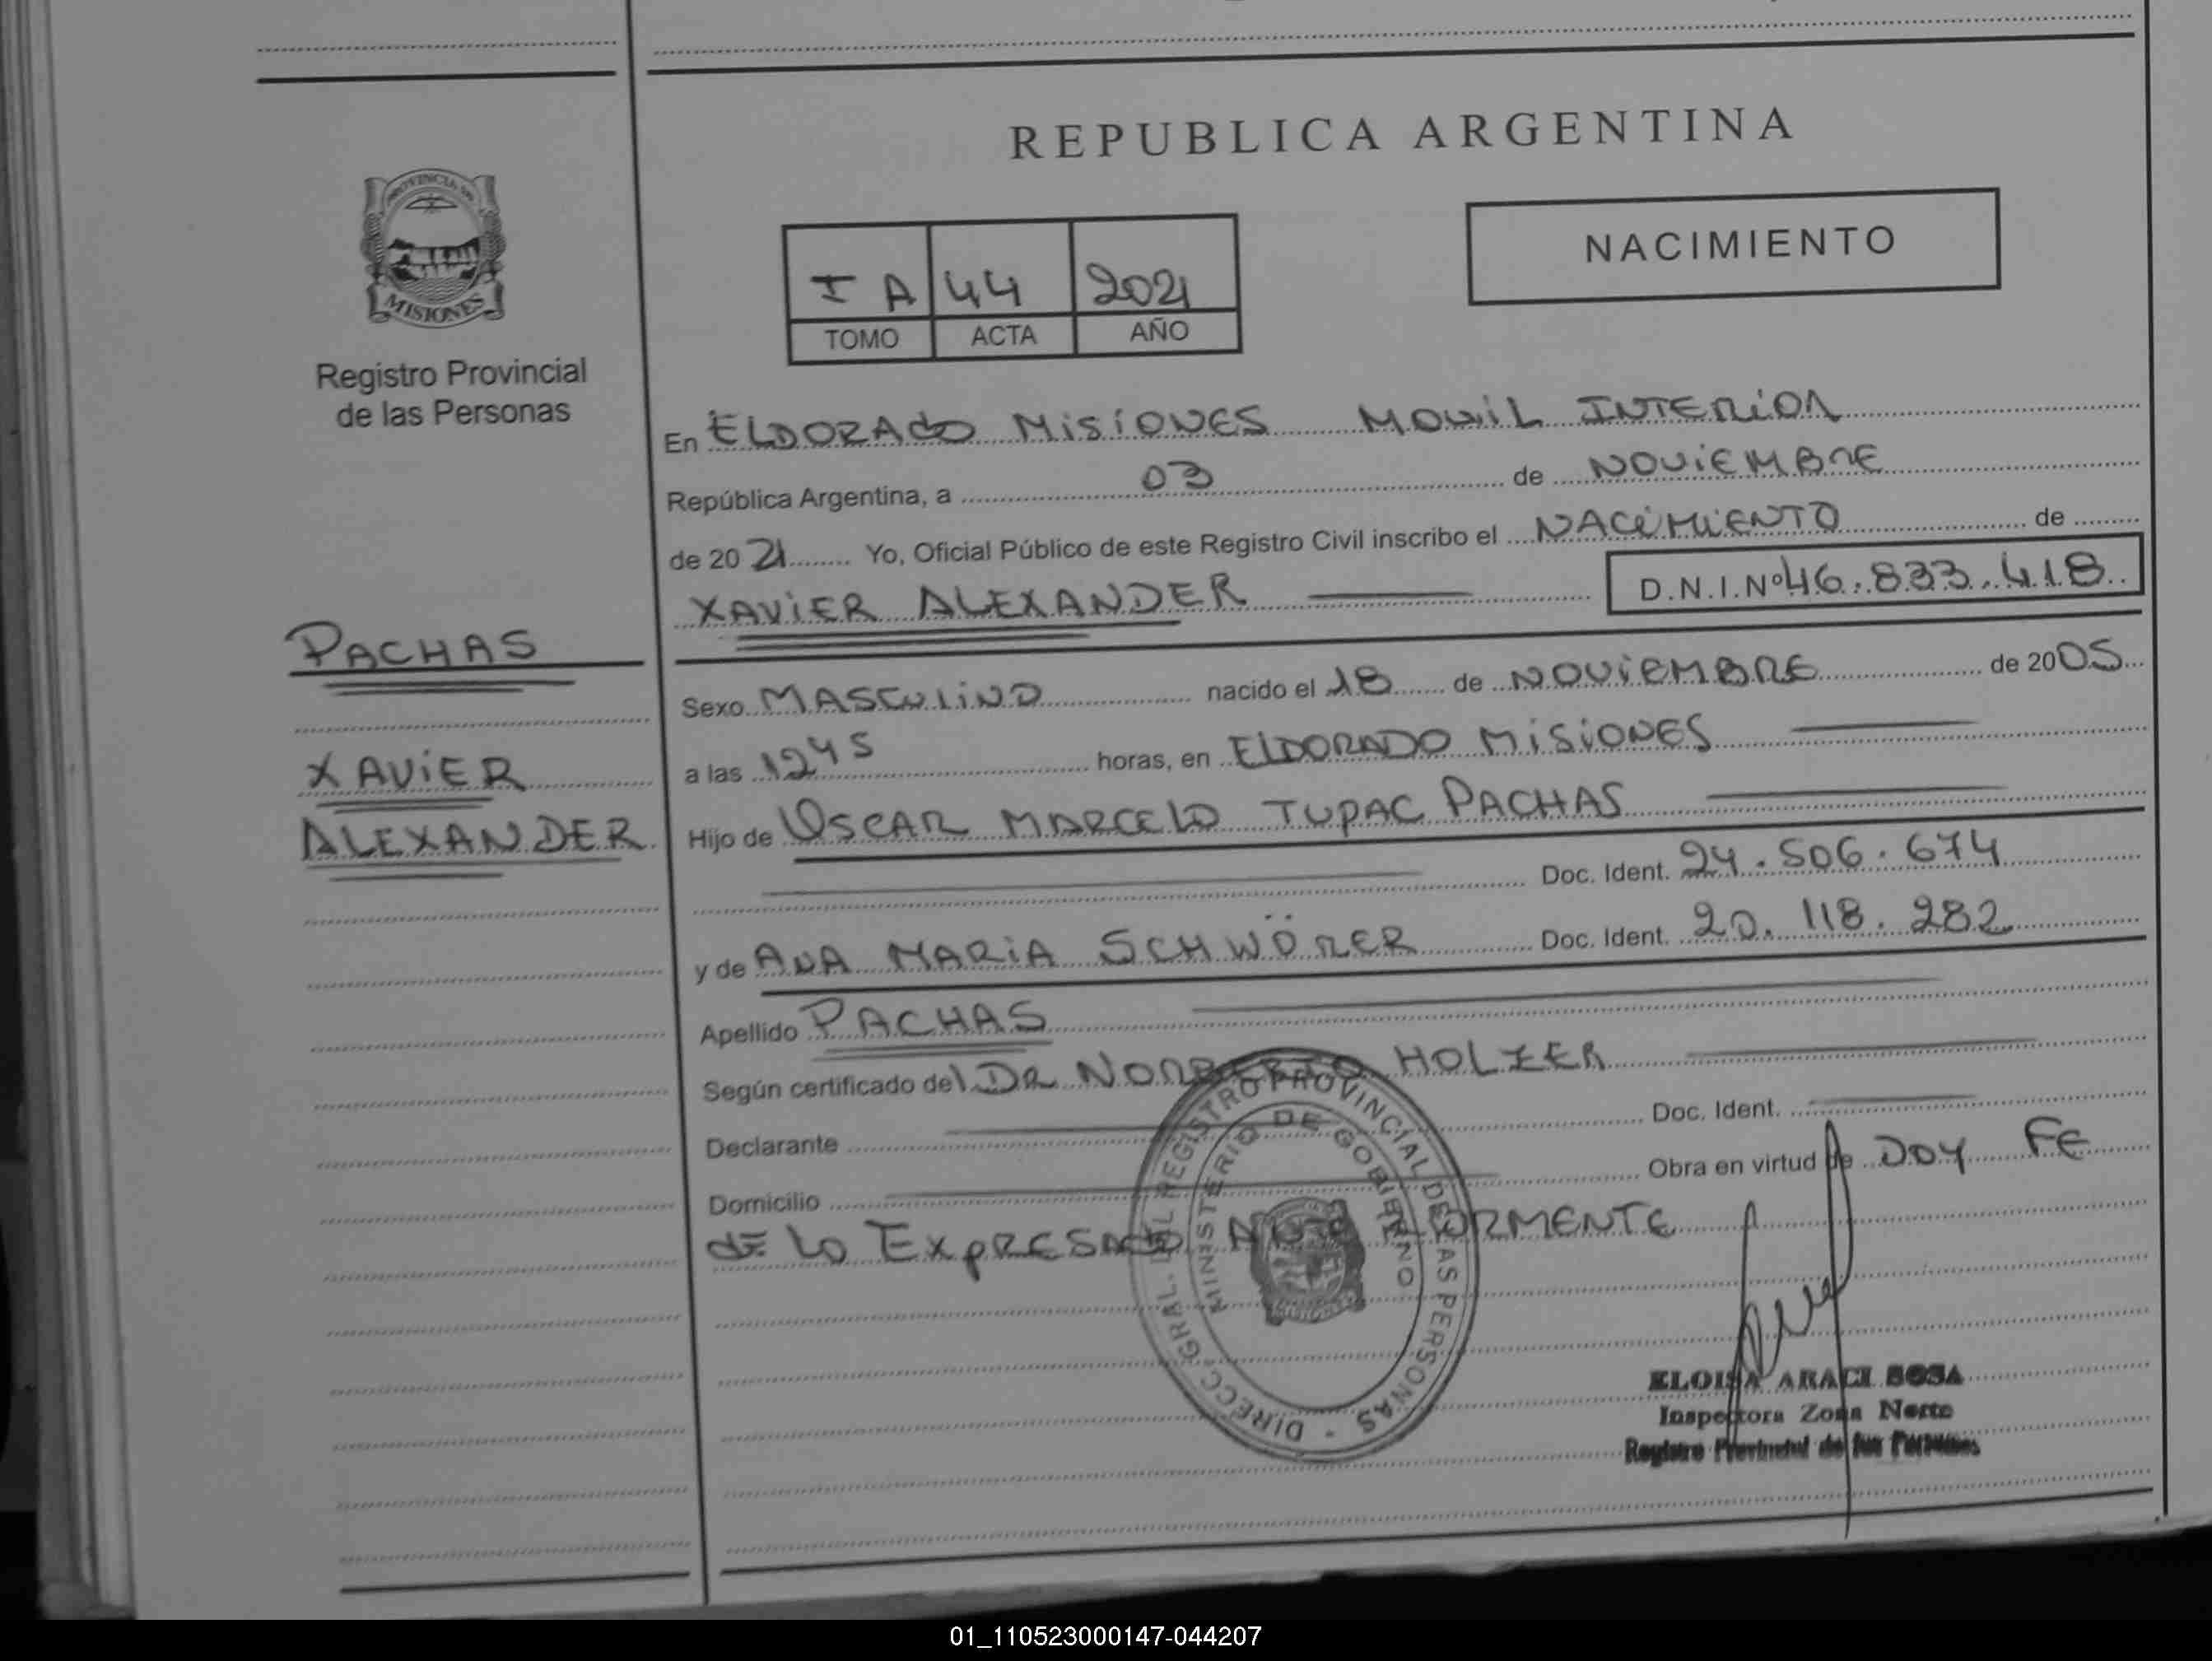 REPUBLICA ARGENTINA
PROVINCIA DE
MISIONES
Registro Provincial
de las Personas
NACIMIENTO
I A 44 2021
TOMO ACTA AÑO
En ELDORADO MISIONES MOVIL INTERIOR
República Argentina, a 03 de NOVIEMBRE
de 2021 Yo, Oficial Público de este Registro Civil inscribo el NACIMIENTO de
XAVIER ALEXANDER D.N.I.Nº 46.833.418
PACHAS
XAVIER
ALEXANDER
Sexo MASCULINO nacido el 18 de NOVIEMBRE de 2005
a las 1245 horas, en ELDORADO MISIONES
Hijo de OSCAR MARCELO TUPAC PACHAS
Doc. Ident. 24.506.674
y de ANA MARIA SCHWÖRER Doc. Ident. 20.118.282
Apellido PACHAS
Según certificado del DR NORBERTO HOLZER
Declarante Doc. Ident.
Domicilio Obra en virtud de DOY FE
DE LO EXPRESADO ANTERIORMENTE
DIRECC. GRAL. DEL REGISTRO PROVINCIAL DE LAS PERSONAS -
MINISTERIO DE GOBIERNO
ELOISA ARACI SOSA
Inspectora Zona Norte
Registro Provincial de las Personas
01_110523000147-044207